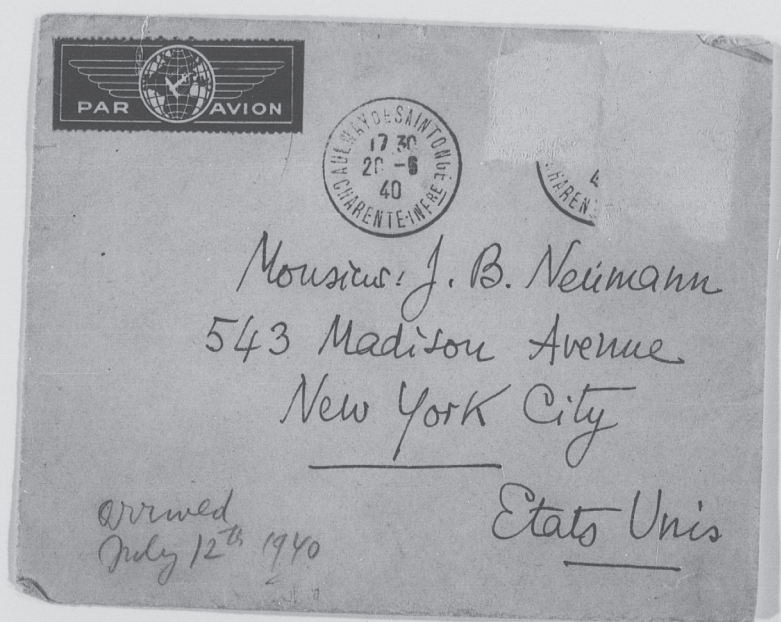 PAR AVION
AULNAY DE SAINTONGE
17 30
20 -6
40
CHARENTE-INFRE
4
CHAREN
Monsieur J. B. Neümann
543 Madison Avenue
New York City
Etats Unis
arrived
July 12th 1940